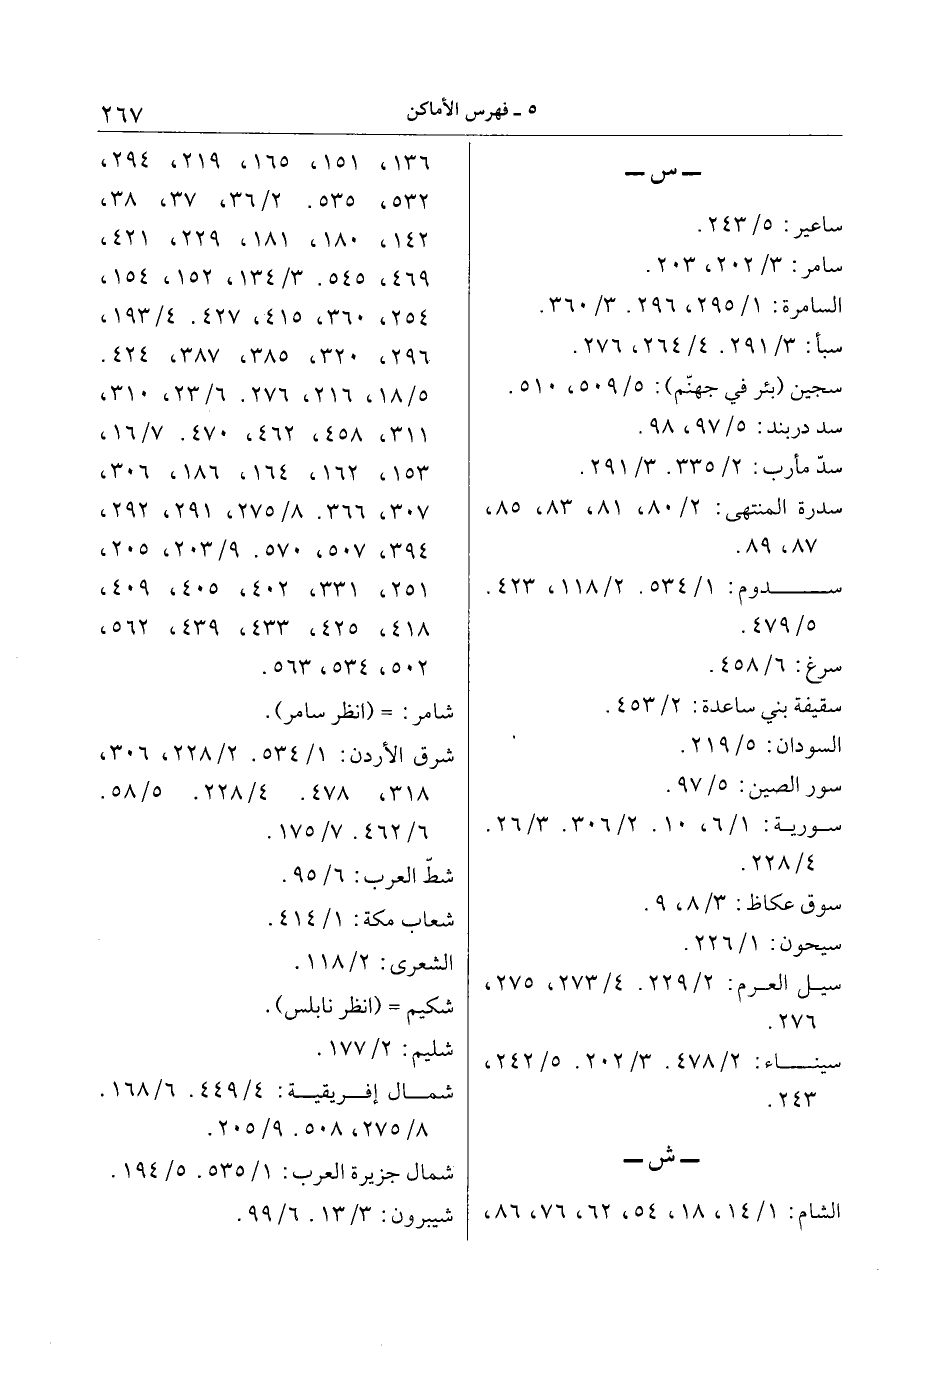 ٥ ـ فهرس الأماكن ٢٦٧
ـ س ـ
ساعير: ٥/ ٢٤٣.
سامر: ٣/ ٢٠٢، ٢٠٣.
السامرة: ١/ ٢٩٥، ٢٩٦. ٣/ ٣٦٠.
سبأ: ٣/ ٢٩١. ٤/ ٢٦٤، ٢٧٦.
سجين (بئر في جهنّم): ٥/ ٥٠٩، ٥١٠.
سد دربند: ٥/ ٩٧، ٩٨.
سدّ مأرب: ٢/ ٣٣٥. ٣/ ٢٩١.
سدرة المنتهى: ٢/ ٨٠، ٨١، ٨٣، ٨٥،
٨٧، ٨٩.
سـدوم: ١/ ٥٣٤. ٢/ ١١٨، ٤٢٣.
٥/ ٤٧٩.
سرغ: ٦/ ٤٥٨.
سقيفة بني ساعدة: ٢/ ٤٥٣.
السودان: ٥/ ٢١٩.
سور الصين: ٥/ ٩٧.
سورية: ١/ ٦، ١٠. ٢/ ٣٠٦. ٣/ ٢٦.
٤/ ٢٢٨.
سوق عكاظ: ٣/ ٨، ٩.
سيحون: ١/ ٢٢٦.
سيل العرم: ٢/ ٢٢٩. ٤/ ٢٧٣، ٢٧٥،
٢٧٦.
سينـاء: ٢/ ٤٧٨. ٣/ ٢٠٢. ٥/ ٢٤٢،
٢٤٣.
ـ ش ـ
الشام: ١/ ١٤، ١٨، ٥٤، ٦٢، ٧٦، ٨٦،
١٣٦، ١٥١، ١٦٥، ٢١٩، ٢٩٤،
٥٣٢، ٥٣٥. ٢/ ٣٦، ٣٧، ٣٨،
١٤٢، ١٨٠، ١٨١، ٢٢٩، ٤٢١،
٤٦٩، ٥٤٥. ٣/ ١٣٤، ١٥٢، ١٥٤،
٢٥٤، ٣٦٠، ٤١٥، ٤٢٧. ٤/ ١٩٣،
٢٩٦، ٣٢٠، ٣٨٥، ٣٨٧، ٤٢٤.
٥/ ١٨، ٢١٦، ٢٧٦. ٦/ ٢٣، ٣١٠،
٣١١، ٤٥٨، ٤٦٢، ٤٧٠. ٧/ ١٦،
١٥٣، ١٦٢، ١٦٤، ١٨٦، ٣٠٦،
٣٠٧، ٣٦٦. ٨/ ٢٧٥، ٢٩١، ٢٩٢،
٣٩٤، ٥٠٧، ٥٧٠. ٩/ ٢٠٣، ٢٠٥،
٢٥١، ٣٣١، ٤٠٢، ٤٠٥، ٤٠٩،
٤١٨، ٤٢٥، ٤٣٣، ٤٣٩، ٥٦٢،
٥٠٢، ٥٣٤، ٥٦٣.
شامر: = (انظر سامر).
شرق الأردن: ١/ ٥٣٤. ٢/ ٢٢٨، ٣٠٦،
٣١٨، ٤٧٨. ٤/ ٢٢٨. ٥/ ٥٨.
٦/ ٤٦٢. ٧/ ١٧٥.
شطّ العرب: ٦/ ٩٥.
شعاب مكة: ١/ ٤١٤.
الشعرى: ٢/ ١١٨.
شكيم = (انظر نابلس).
شليم: ٢/ ١٧٧.
شمـال إفـريقيـة: ٤/ ٤٤٩. ٦/ ١٦٨.
٨/ ٢٧٥، ٥٠٨. ٩/ ٢٠٥.
شمال جزيرة العرب: ١/ ٥٣٥. ٥/ ١٩٤.
شيبرون: ٣/ ١٣. ٦/ ٩٩.